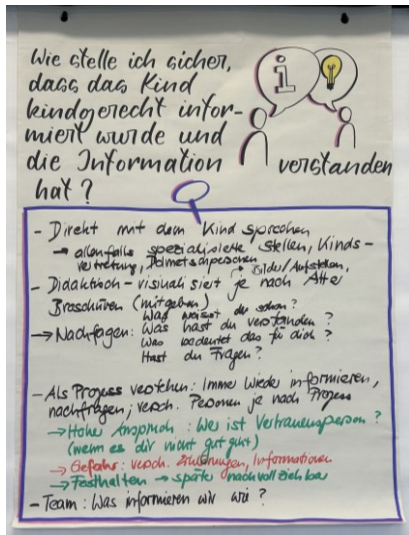 Wie stelle ich sicher,
dass das Kind
kindgerecht infor-
miert wurde und
die Information verstanden
hat?
i
- Direkt mit dem Kind sprechen
→ allenfalls spezialisierte Stellen, Kinds-
vertretung, Dolmetschpersonen
→ Bilder/Aufstellen,
- Didaktisch - visualisiert je nach Alter
Broschüren (mitgeben)
Was weisst du schon?
→ Nachfragen: Was hast du verstanden?
Was bedeutet das für dich?
Hast du Fragen?
- Als Prozess verstehen: Immer wieder informieren,
nachfragen; versch. Personen je nach Prozess
→ Hoher Anspruch: Wer ist Vertrauensperson?
(wenn es dir nicht gut geht)
→ Gefahr: versch. Erklärungen, Informationen
→ Festhalten → später nachvollziehbar
- Team: Was informieren wir wie?